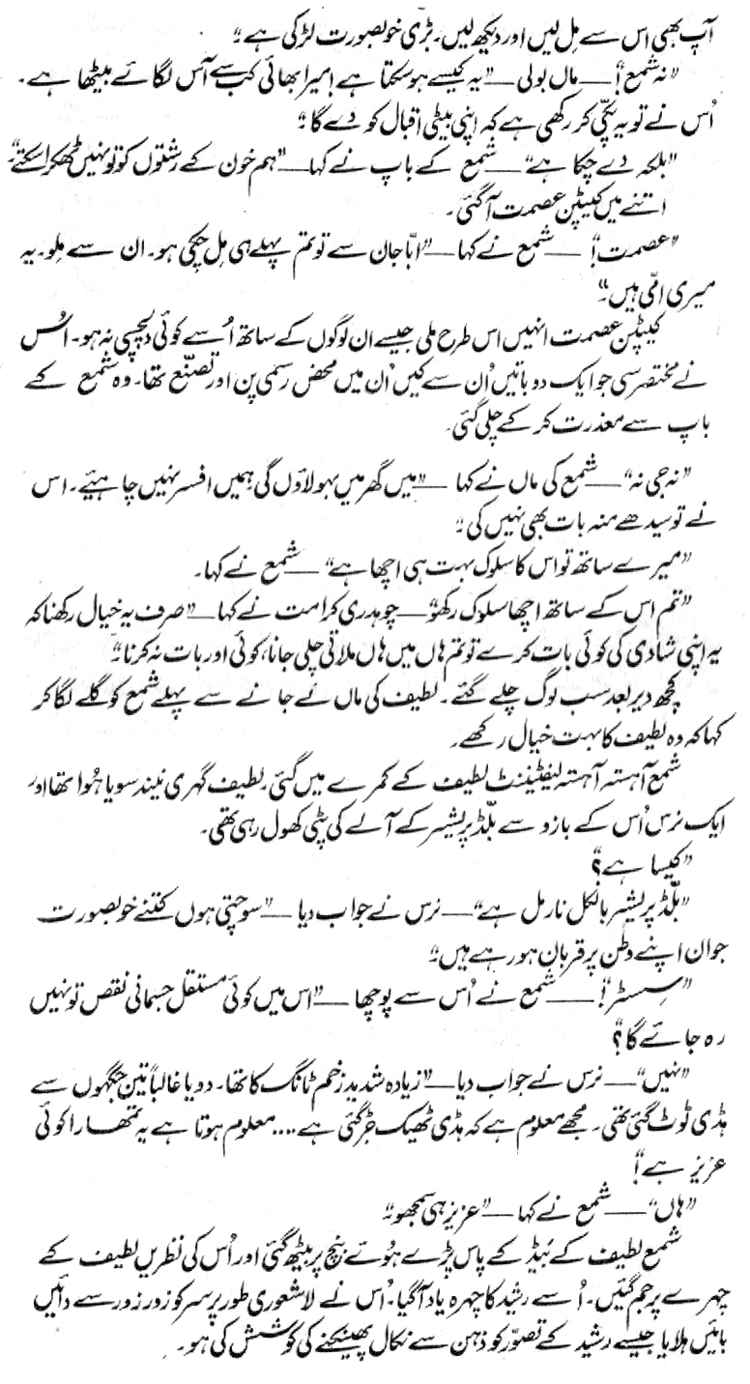 آپ بھی اس سے مِل لیں اور دیکھ لیں۔ بڑی خوبصورت لڑکی ہے۔"
"نہ شمع!" — ماں بولی — "یہ کیسے ہوسکتا ہے! میرا بھائی کب سے آس لگائے بیٹھا ہے۔
اُس نے تو یہ پکّی کر رکھی ہے کہ اپنی بیٹی اقبال کو دے گا۔"
"بلکہ دے چکا ہے" — شمع کے باپ نے کہا — "ہم خون کے رشتوں کو تو نہیں ٹھکرا سکتے۔"
اتنے میں کیپٹن عصمت آگئی۔
"عصمت!" — شمع نے کہا — "ابّا جان سے تو تم پہلے ہی مِل چکی ہو۔ ان سے مِلو۔ یہ
میری امّی ہیں۔"
کیپٹن عصمت انہیں اس طرح ملی جیسے ان لوگوں کے ساتھ اُسے کوئی دلچسپی نہ ہو۔ اُس
نے مختصر سی جو ایک دو باتیں اُن سے کیں اُن میں محض رسمی پن اور تصنّع تھا۔ وہ شمع کے
باپ سے معذرت کر کے چلی گئی۔
"نہ جی نہ" — شمع کی ماں نے کہا — "میں گھر میں بہو لاؤں گی، ہمیں افسر نہیں چاہیئے۔ اس
نے تو سیدھے منہ بات بھی نہیں کی۔"
"میرے ساتھ تو اس کا سلوک بہت ہی اچھا ہے" — شمع نے کہا۔
"تم اس کے ساتھ اچھا سلوک رکھو" — چوہدری کرامت نے کہا — "صرف یہ خیال رکھنا کہ
یہ اپنی شادی کی کوئی بات کرے تو تم ہاں میں ہاں ملاتی چلی جانا، کوئی اور بات نہ کرنا۔"
کچھ دیر بعد سب لوگ چلے گئے۔ لطیف کی ماں نے جانے سے پہلے شمع کو گلے لگا کر
کہا کہ وہ لطیف کا بہت خیال رکھے۔
شمع آہستہ آہستہ لیفٹیننٹ لطیف کے کمرے میں گئی۔ لطیف گہری نیند سویا ہُوا تھا اور
ایک نرس اُس کے بازو سے بلڈ پریشر کے آلے کی پٹی کھول رہی تھی۔
"کیسا ہے؟"
"بلڈ پریشر بالکل نارمل ہے" — نرس نے جواب دیا — "سوچتی ہوں کتنے خوبصورت
جوان اپنے وطن پر قربان ہو رہے ہیں۔"
"سسٹر!" — شمع نے اُس سے پوچھا — "اس میں کوئی مستقل جسمانی نقص تو نہیں
رہ جائے گا؟"
"نہیں" — نرس نے جواب دیا — "زیادہ شدید زخم ٹانگ کا تھا۔ دو یا غالباً تین جگہوں سے
ہڈی ٹوٹ گئی تھی۔ مجھے معلوم ہے کہ ہڈی ٹھیک جڑ گئی ہے.... معلوم ہوتا ہے یہ تمھارا کوئی
عزیز ہے!"
"ہاں" — شمع نے کہا — "عزیز ہی سمجھو۔"
شمع لطیف کے بیڈ کے پاس پڑے ہُوئے بنچ پر بیٹھ گئی اور اُس کی نظریں لطیف کے
چہرے پر جم گئیں۔ اُسے رشید کا چہرہ یاد آ گیا۔ اُس نے لاشعوری طور پر سر کو زور زور سے دائیں
بائیں ہلایا جیسے رشید کے تصوّر کو ذہن سے نکال پھینکنے کی کوشش کی ہو۔